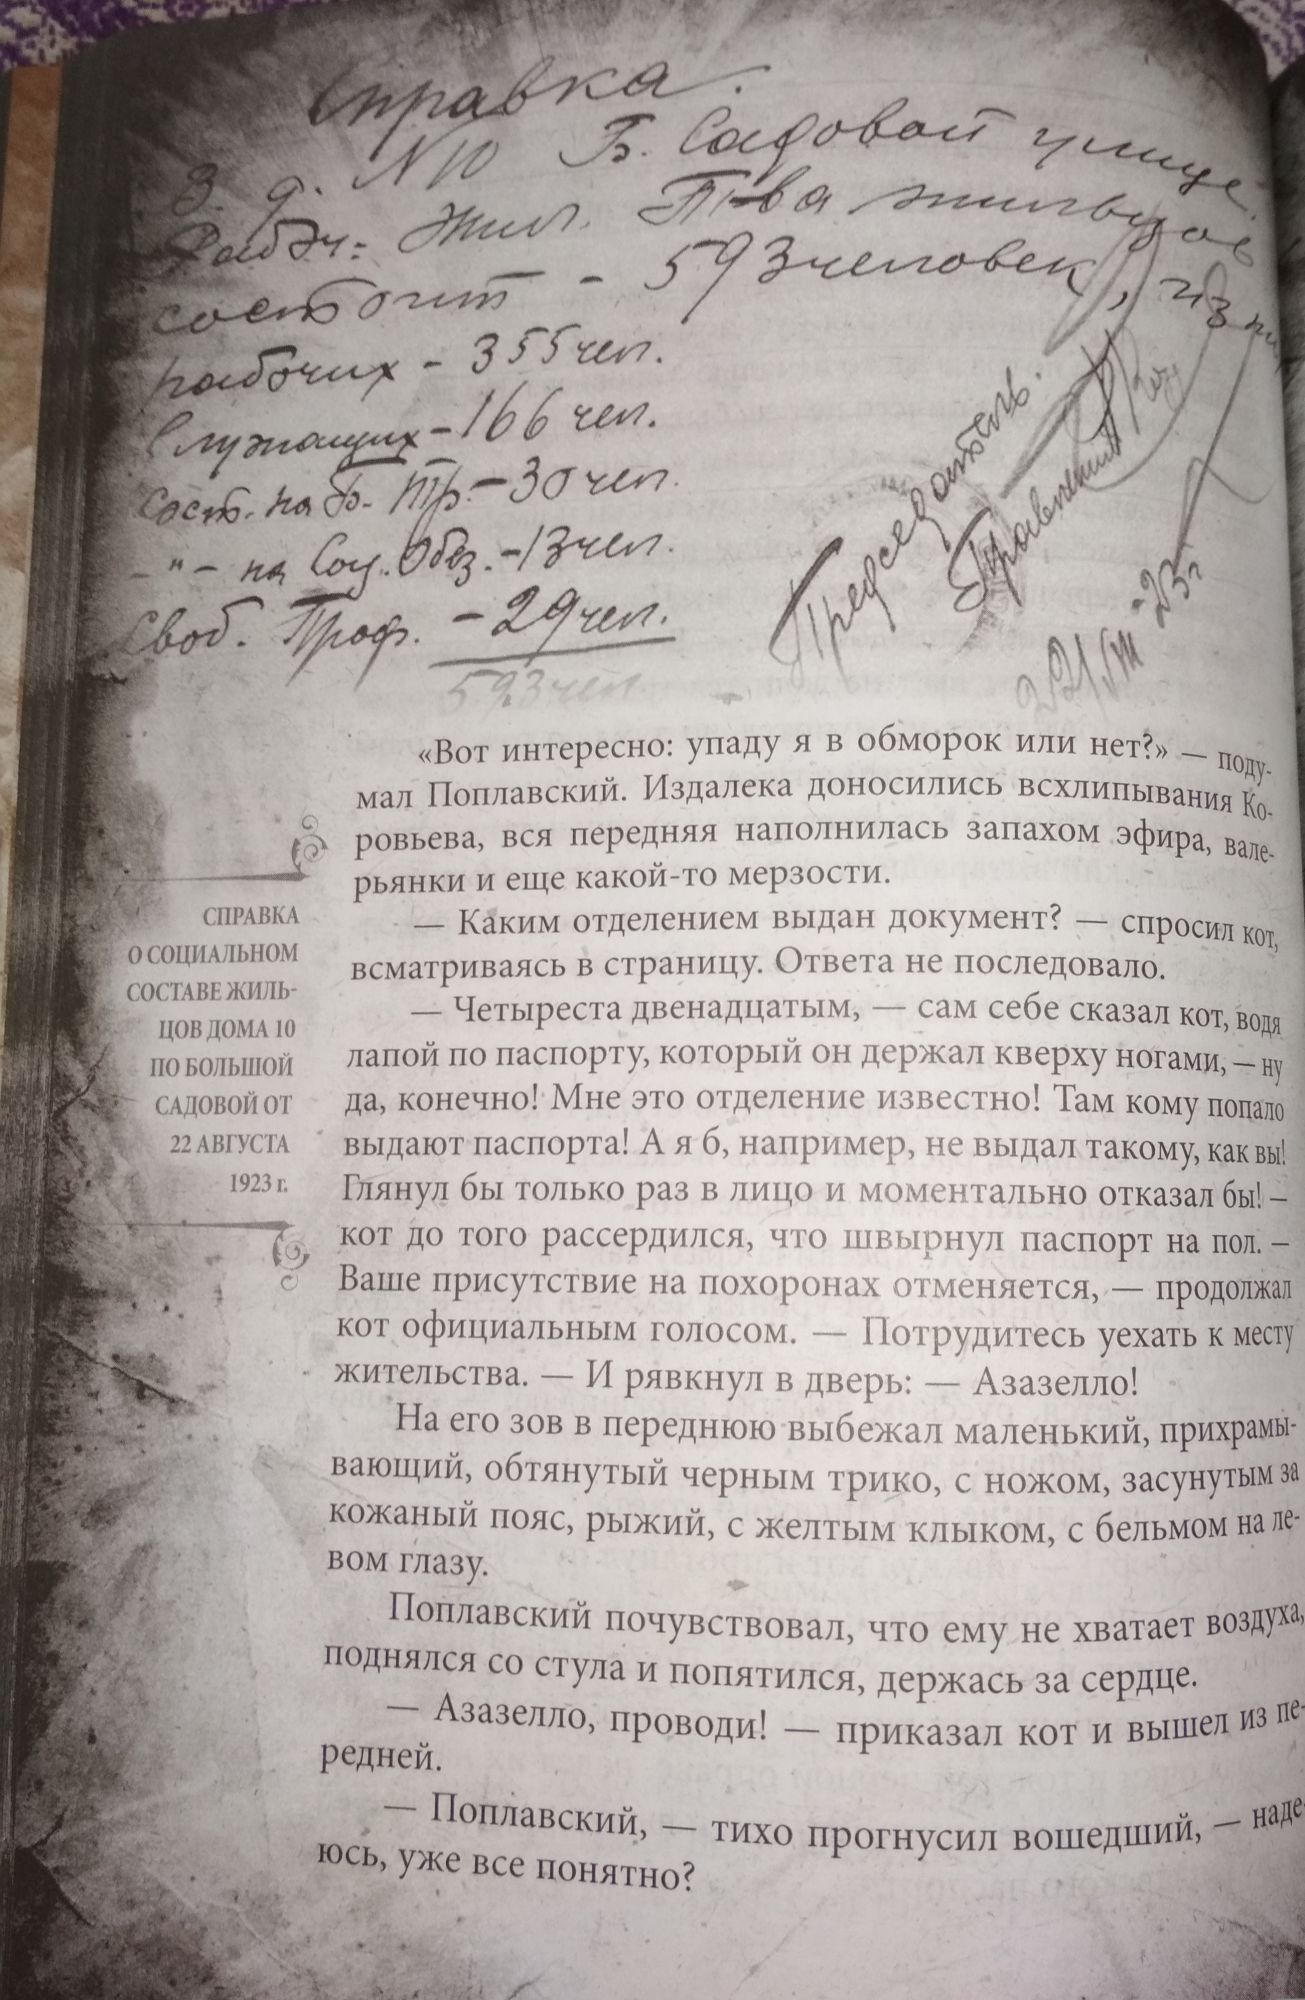 Справка.
З. д. N 10 Б. Садовой улице.
Рабоч. Жил. Т-ва жильцов
состоит - 593 человек, из них
рабочих - 355 чел.
Служащих - 166 чел.
Сост. на Б. Тр. - 30 чел.
- " - на Соц. Обез. - 13 чел.
Своб. Проф. - 29 чел.
593 чел
Председатель
Правления
22/VIII - 23 г
«Вот интересно: упаду я в обморок или нет?» — поду-
мал Поплавский. Издалека доносились всхлипывания Ко-
ровьева, вся передняя наполнилась запахом эфира, вале-
рьянки и еще какой-то мерзости.
— Каким отделением выдан документ? — спросил кот,
всматриваясь в страницу. Ответа не последовало.
— Четыреста двенадцатым, — сам себе сказал кот, водя
лапой по паспорту, который он держал кверху ногами, — ну
да, конечно! Мне это отделение известно! Там кому попало
выдают паспорта! А я б, например, не выдал такому, как вы!
Глянул бы только раз в лицо и моментально отказал бы! –
кот до того рассердился, что швырнул паспорт на пол. –
Ваше присутствие на похоронах отменяется, — продолжал
кот официальным голосом. — Потрудитесь уехать к месту
жительства. — И рявкнул в дверь: — Азазелло!
На его зов в переднюю выбежал маленький, прихрамы-
вающий, обтянутый черным трико, с ножом, засунутым за
кожаный пояс, рыжий, с желтым клыком, с бельмом на ле-
вом глазу.
Поплавский почувствовал, что ему не хватает воздуха,
поднялся со стула и попятился, держась за сердце.
— Азазелло, проводи! — приказал кот и вышел из пе-
редней.
— Поплавский, — тихо прогнусил вошедший, — наде-
юсь, уже все понятно?
СПРАВКА
О СОЦИАЛЬНОМ
СОСТАВЕ ЖИЛЬ-
ЦОВ ДОМА 10
ПО БОЛЬШОЙ
САДОВОЙ ОТ
22 АВГУСТА
1923 г.